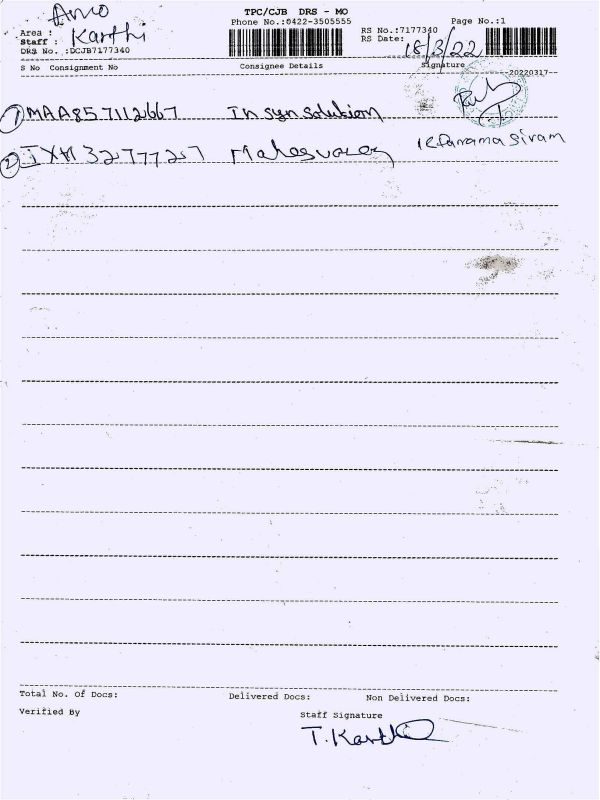 Amo
TPC/CJB DRS - MO
Phone No.:0422-3505555
RS No.:7177340
Page No.:1
Area :
RS Date: 18/3/22
Staff : Karthi
DRS No. :DCJB7177340
S No Consignment No
Consignee Details
Signature
20220317
1 MAA857112667 In syn solution
2 IXM32777727 Maheswaren
Total No. of Docs:
Delivered Docs:
Non Delivered Docs:
Verified By
Staff Signature
T. Karthi